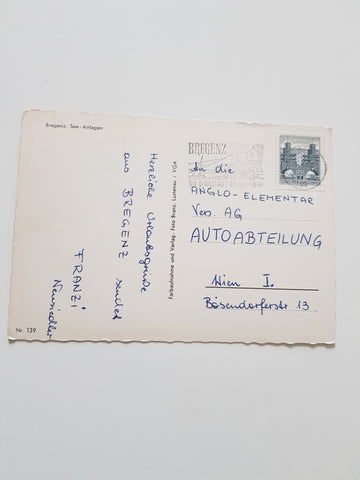 Bregenz. See-Anlagen
Herzliche Urlaubsgrüße
aus BREGENZ sendet
FRANZI
Neusiedler
Nr. 139
Farbaufnahme und Verlag: Foto Branz, Lustenau / VGA
BREGENZ
An die
ANGLO-ELEMENTAR
Vers AG
AUTOABTEILUNG
Wien I.
Bösendorferstr 13